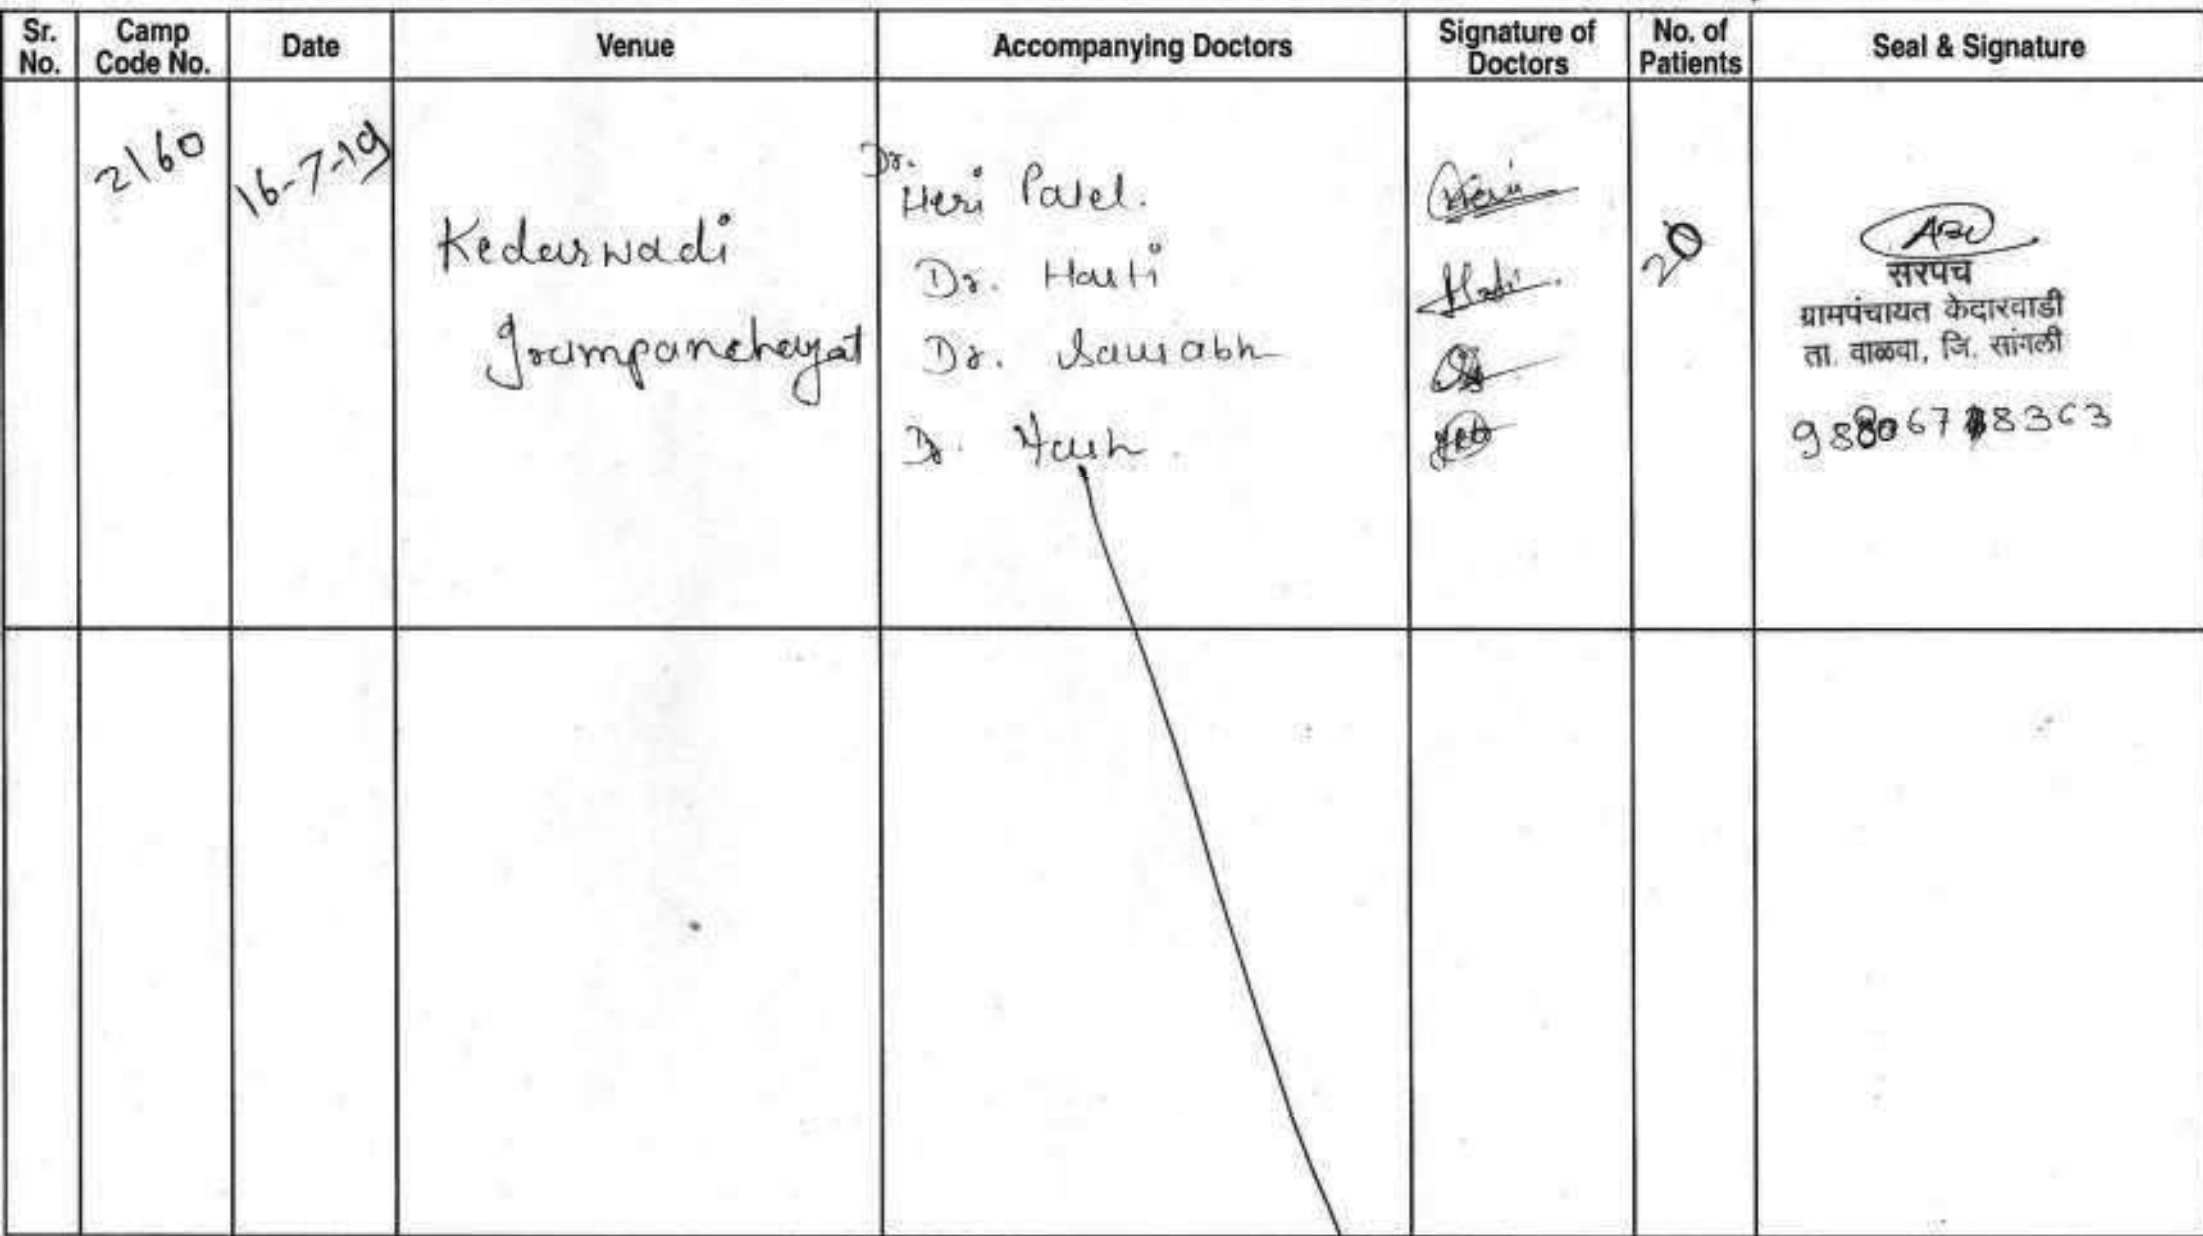 Sr. No.
Camp Code No.
Date
Venue
Accompanying Doctors
Signature of Doctors
No. of Patients
Seal & Signature
2160
16-7-19
Kedarwadi
Grampanchayat
Dr. Heri Patel.
Dr. Harti
Dr. Saurabh
Dr. Harsh
20
सरपंच
ग्रामपंचायत केदारवाडी
ता. वाळवा, जि. सांगली